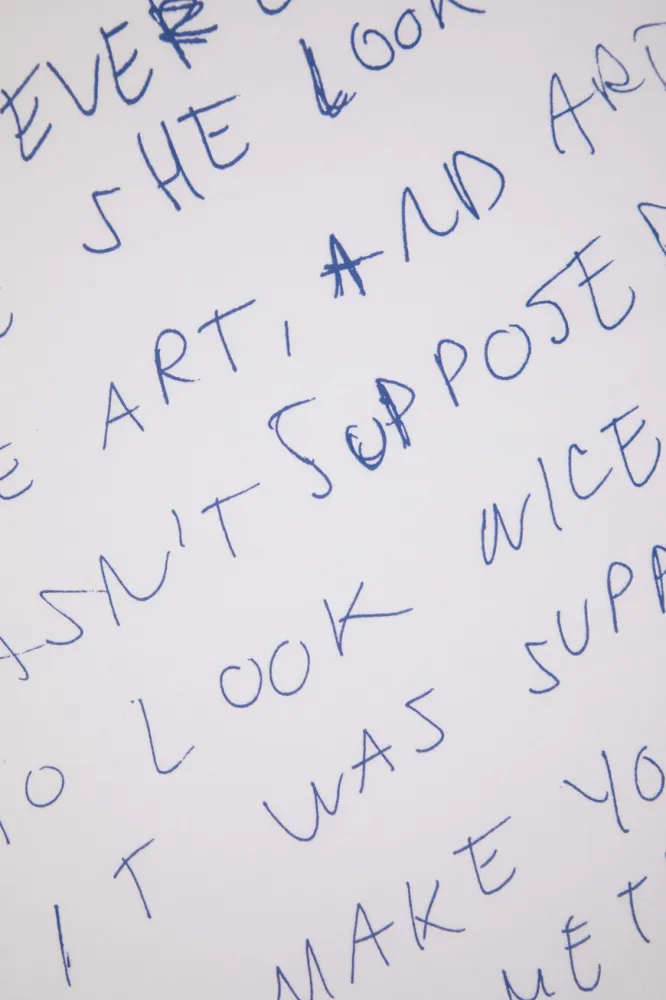 EVER
SHE LOOK
E ART, AND ART
ASN'T SUPPOSED
TO LOOK NICE
IT WAS SUPP
MAKE YO
MET